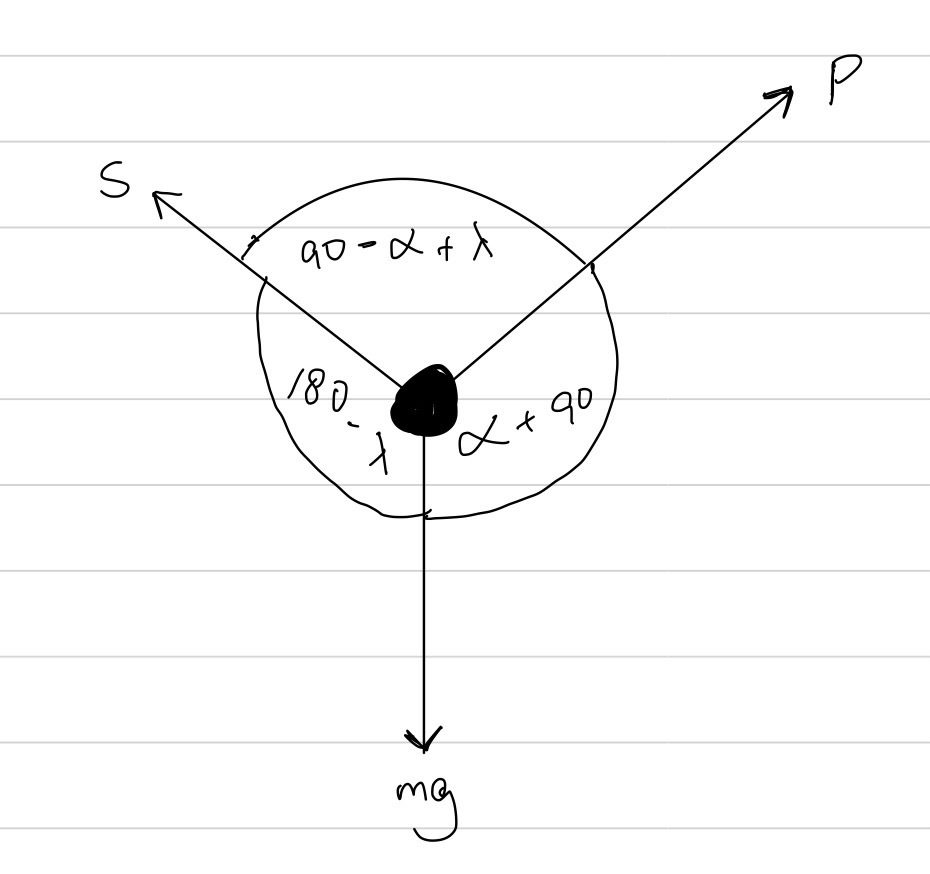 P
S
90 - α + λ
180 - λ
α + 90
mg